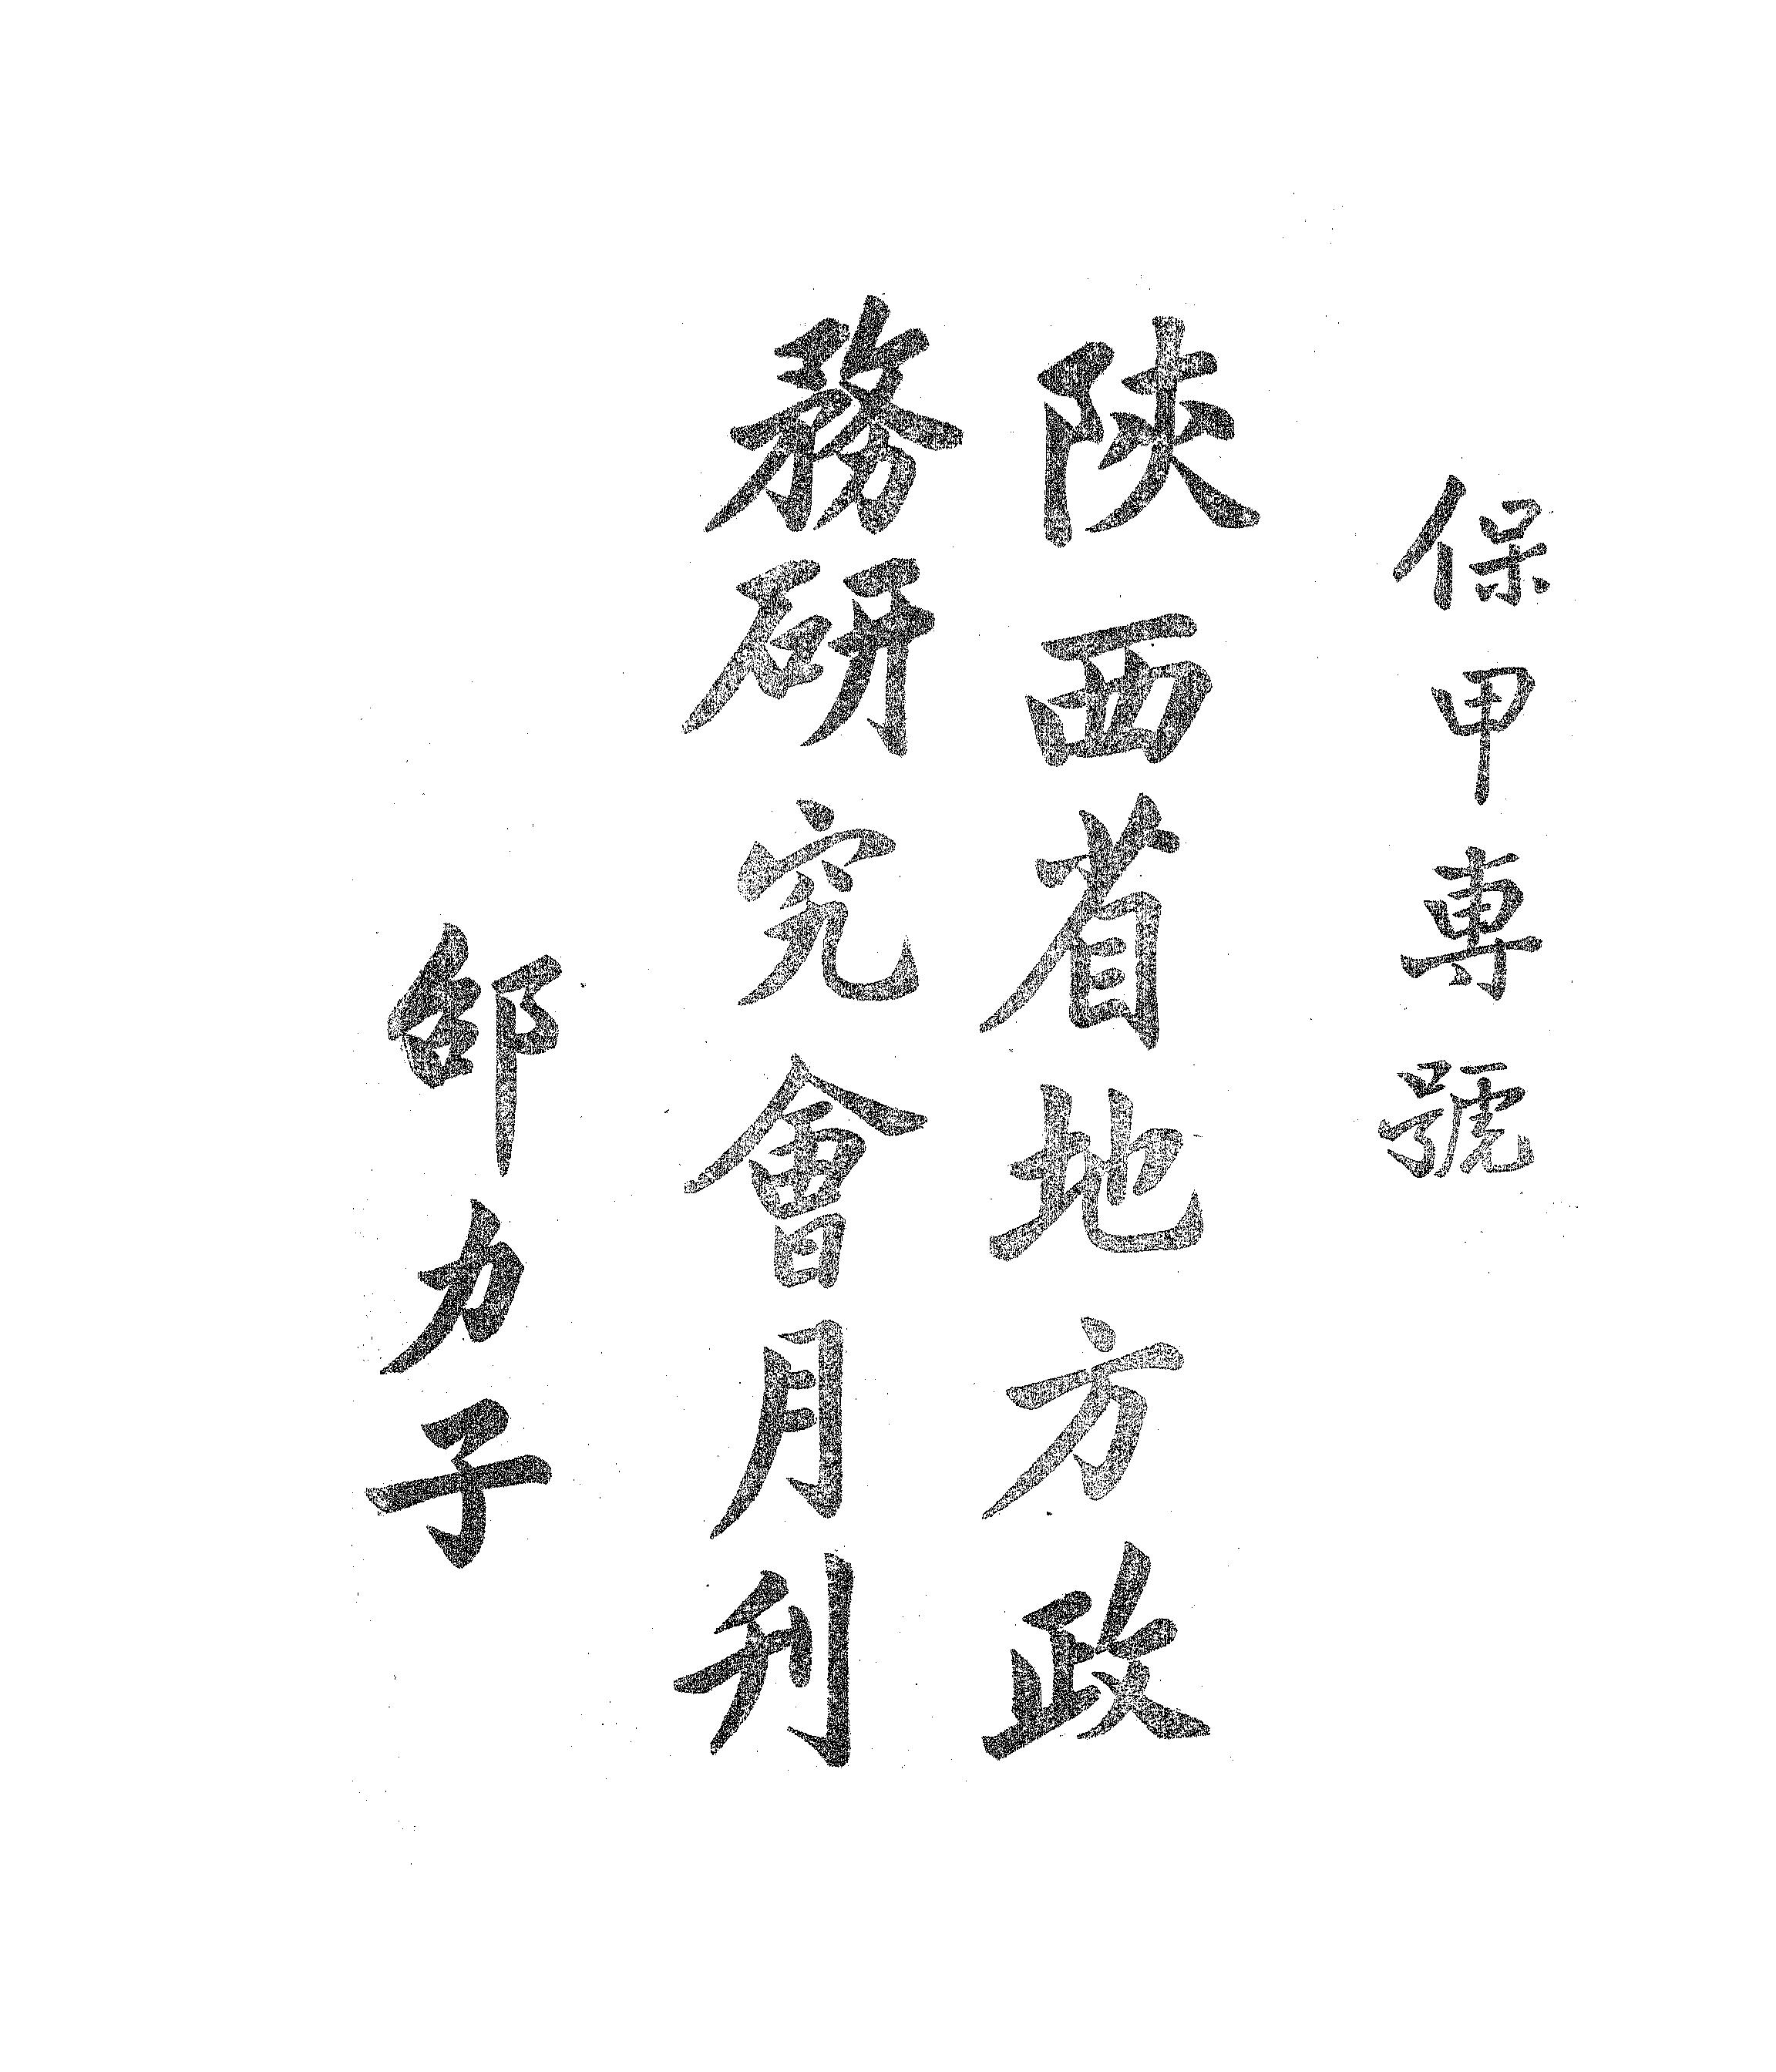 保甲專號
陝西省地方政
務研究會月刊
邵力子